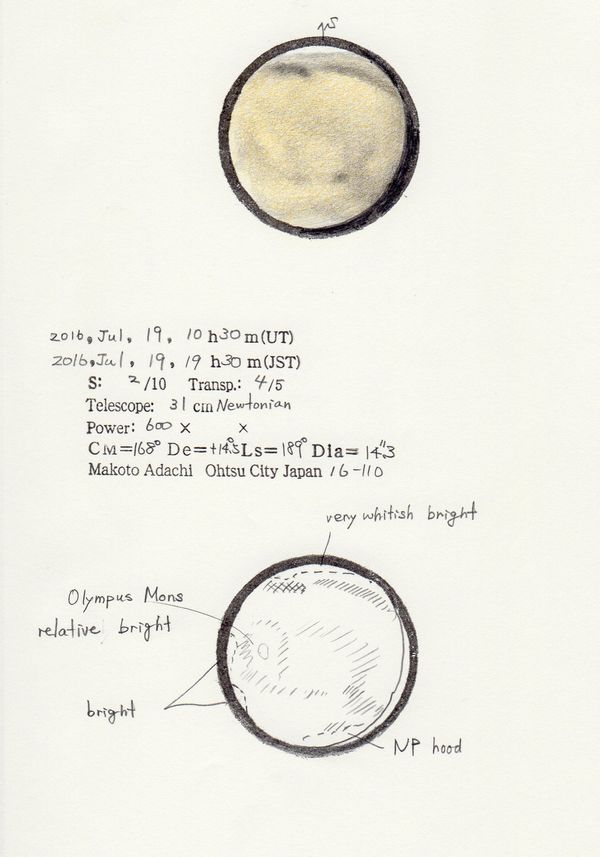 S
2016, Jul, 19, 10 h 30 m (UT)
2016, Jul, 19, 19 h 30 m (JST)
S: 2/10 Transp.: 4/5
Telescope: 31 cm Newtonian
Power: 600 × ×
CM=168° De=+14.5° Ls=189° Dia=14."3
Makoto Adachi Ohtsu City Japan 16-110
very whitish bright
Olympus Mons
relative bright
bright
NP hood